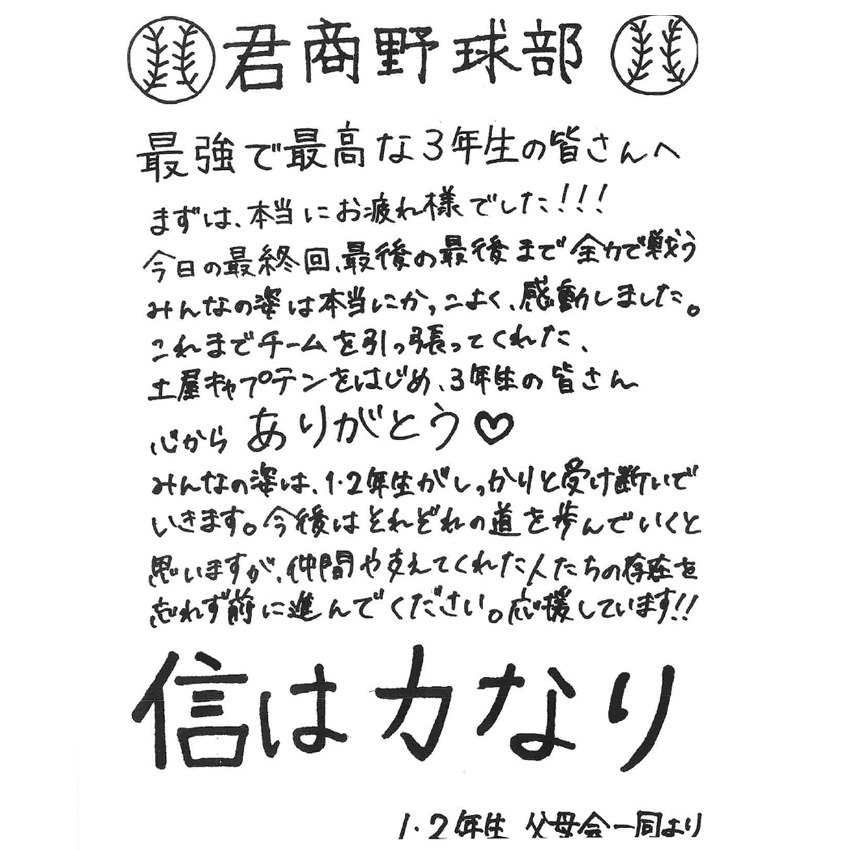 君商野球部
最強で最高な3年生の皆さんへ
まずは、本当にお疲れ様でした!!!
今日の最終回、最後の最後まで全力で戦う
みんなの姿は本当にかっこよく、感動しました。
これまでチームを引っ張ってくれた、
土屋キャプテンをはじめ、3年生の皆さん
心から ありがとう♡
みんなの姿は、1・2年生がしっかりと受け継いで
いきます。今後はそれぞれの道を歩んでいくと
思いますが、仲間や支えてくれた人たちの存在を
忘れず前に進んでください。応援しています!!
信は力なり
1・2年生 父母会一同より